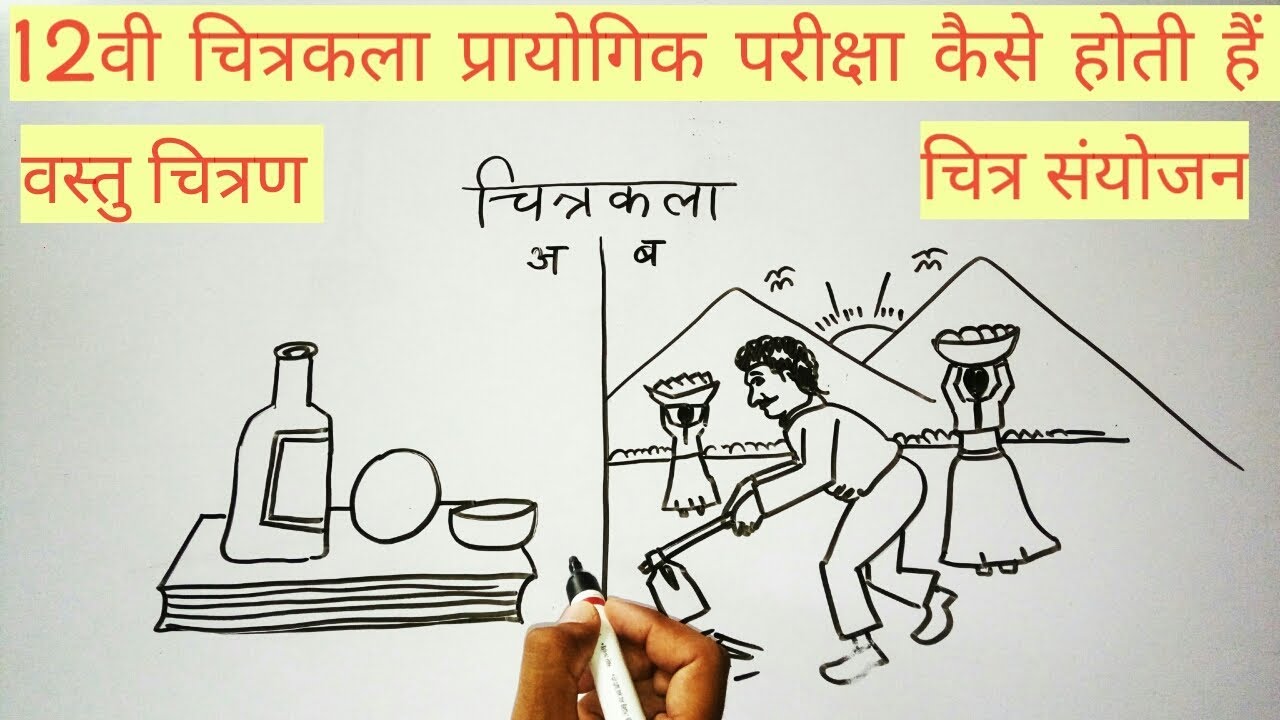 12वी चित्रकला प्रायोगिक परीक्षा कैसे होती हैं
वस्तु चित्रण
चित्र संयोजन
चित्रकला
अ
ब